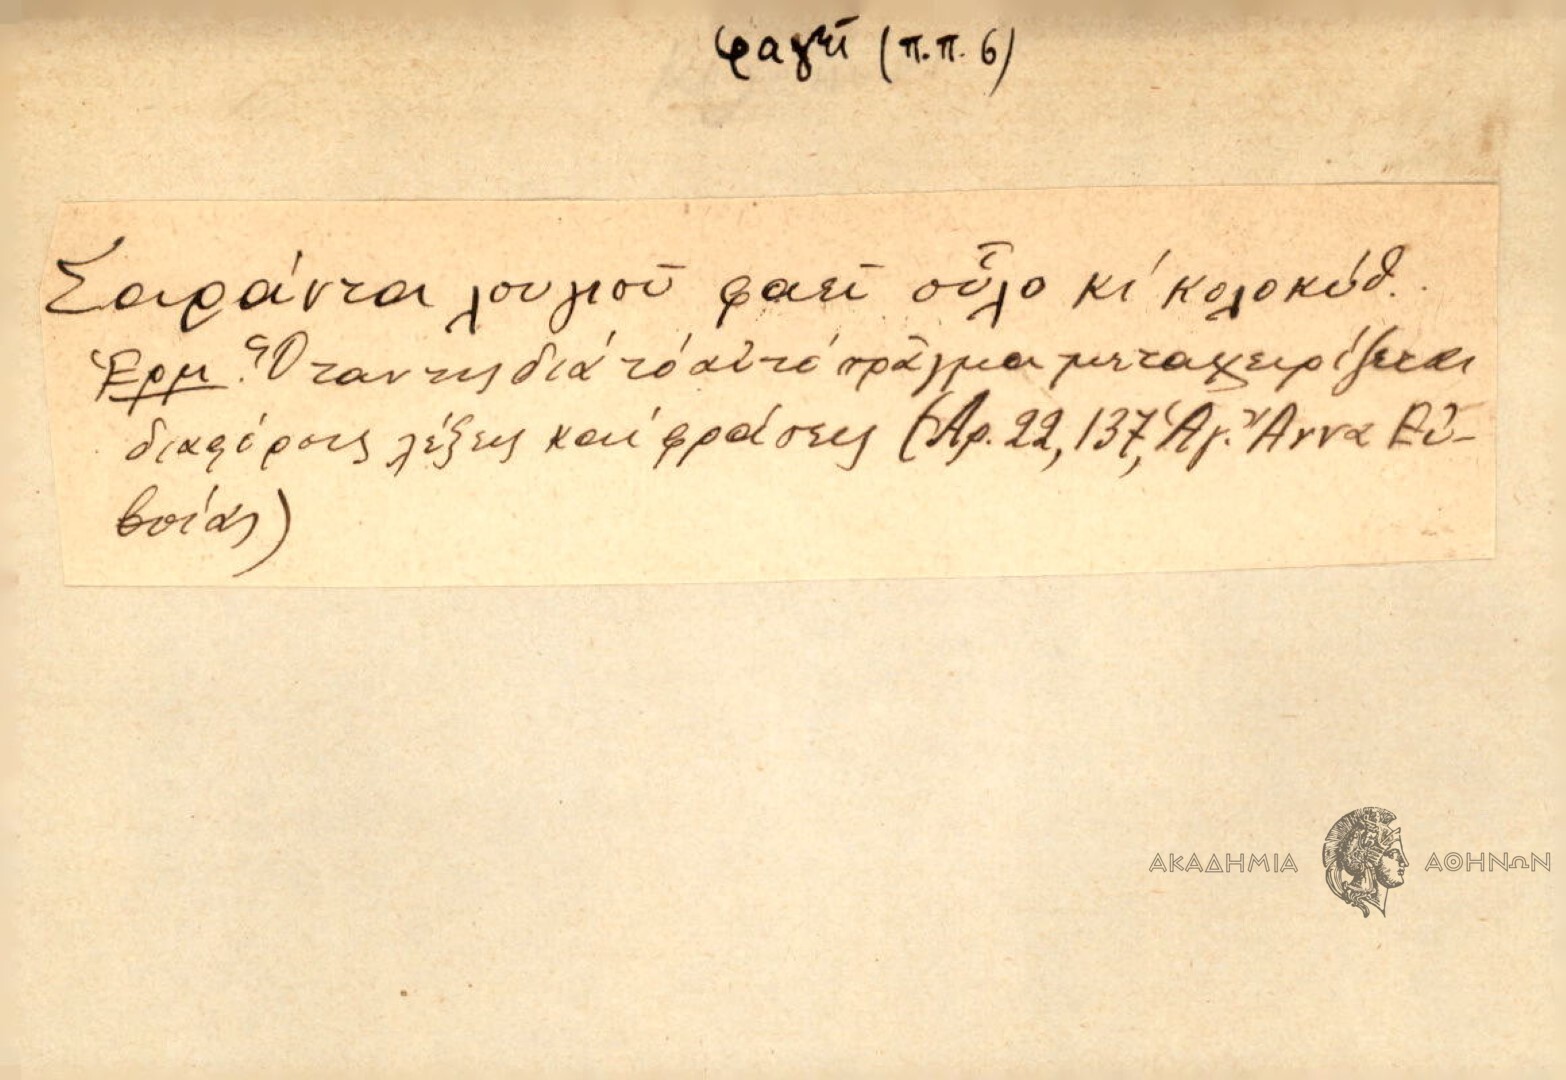 φαγεῖ (π.π. 6)
Σαράντα λουγιοῦ φαεῖ οὗλο κί κολοκύθ.
Ἑρμ. Ὅταν τις διά τό αὐτό πρᾶγμα μεταχειρίζεται
διαφόρους λέξεις καί φράσεις (Ἀρ. 22, 137, Ἁγ. Ἄννα Εὐ-
βοίας)
ΑΚΑΔΗΜΙΑ ΑΘΗΝΩΝ